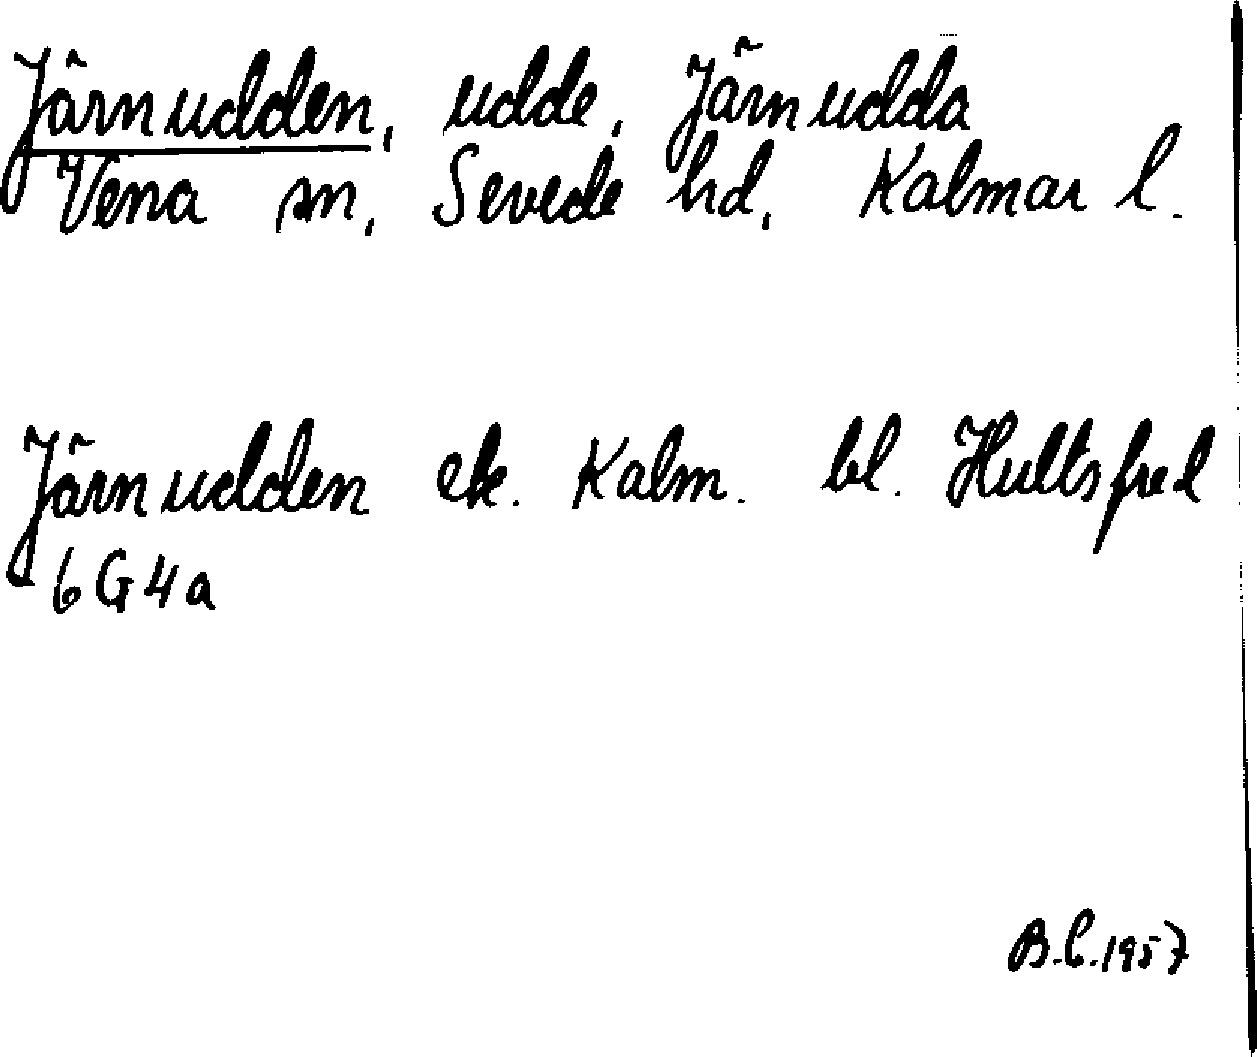 Järnudden, udde, Järnudda
Vena sn, Sevede hd, Kalmar l.
Järnudden ek. Kalm. bl. Hultsfred
6G4a
B.C.1957